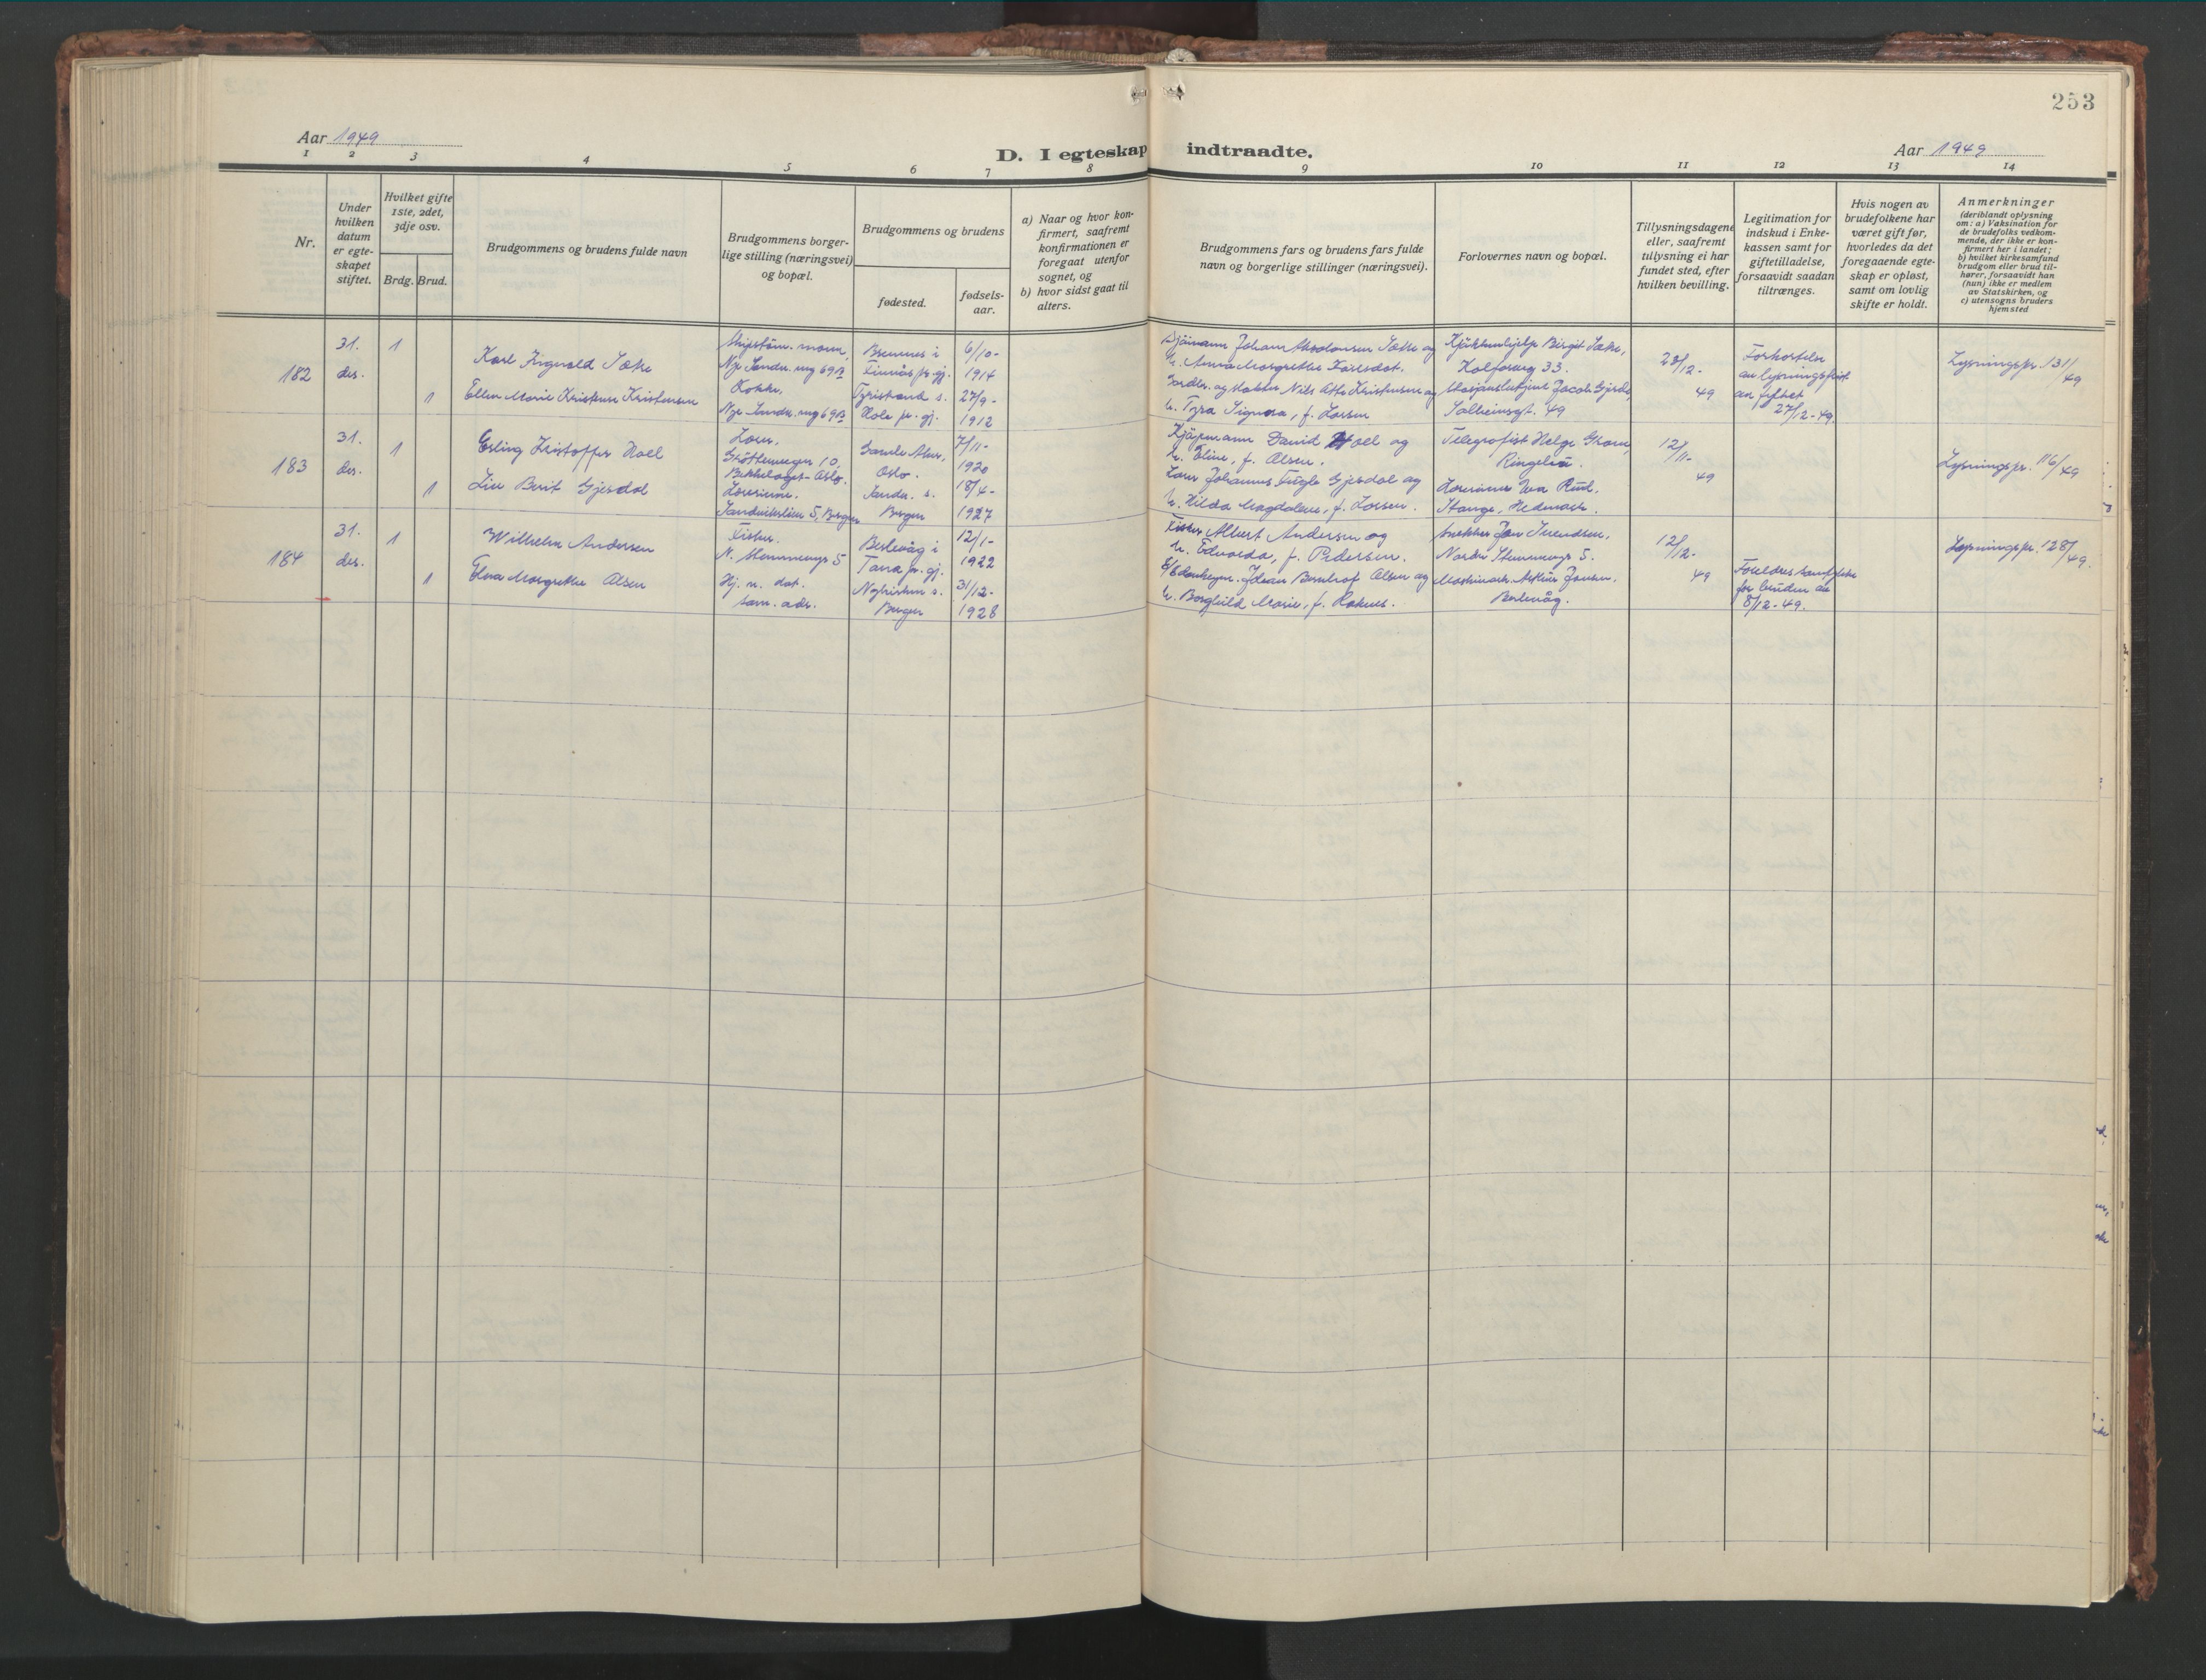 253
Aar 1949
D. I egteskap indtraadte.
Aar 1949
1 2 3 4 5 6 7 8 9 10 11 12 13 14
Nr.
Under hvilken datum er egteskapet stiftet.
Hvilket gifte 1ste, 2det, 3dje osv.
Brdg. Brud.
Brudgommens og brudens fulde navn
Brudgommens borgerlige stilling (næringsvei) og bopæl.
Brudgommens og brudens
fødested.
fødselsaar.
a) Naar og hvor konfirmert, saafremt konfirmationen er foregaat utenfor sognet, og
b) hvor sidst gaat til alters.
Brudgommens fars og brudens fars fulde navn og borgerlige stillinger (næringsvei).
Forlovernes navn og bopæl.
Tillysningsdagene eller, saafremt tillysning ei har fundet sted, efter hvilken bevilling.
Legitimation for indskud i Enkekassen samt for giftetilladelse, forsaavidt saadan tiltrænges.
Hvis nogen av brudefolkene har været gift før, hvorledes da det foregaaende egteskap er opløst, samt om lovlig skifte er holdt.
Anmerkninger
(deriblandt oplysning om: a) Vaksination for de brudefolks vedkommende, der ikke er konfirmert her i landet; b) hvilket kirkesamfund brudgom eller brud tilhører, forsaavidt han (hun) ikke er medlem av Statskirken, og c) utensogns bruders hjemsted
182
31. des.
1
Karl Sigvald Sæke
Nye Sandv. veg 69B
Bremnes i Finnås pr.gj.
6/10-1914
1
Ellen Marie Kristense Kristensen
Kokke.
Nye Sandv. veg 69B
Tyristrand s. Hole pr. gj.
27/9-1912
Sjömann Johan Absalonsen Sæke og
h. Anna Margrethe Karlsdot.
Nils Otto Kristensen og
h. Tyra Signora, f. Larsen
Kjökkenhjelp Birgit Sæke,
Kalfarveg 33.
Jacob Gjesdal,
Solheimsgt. 49
28/12-49
Forkortelse
av lysningsfrist
av fyltet
27/12-49.
Lysningspr. 131/49
183
31. des.
1
Erling Kristoffer Hoel
Lærer.
10,
Bekkelaget-Oslo.
Gamle Aker, Oslo.
7/11-1920
1
Liv Berit Gjesdal
Lærerinne.
Sandvikslien 5, Bergen
Sandv. s. Bergen
18/4-1927
Kjöpmann David Hoel og
h. Eline, f. Olsen.
Lærer Johannes Fugle Gjesdal og
h. Hilda Magdalene, f. Larsen.
Telegrafist Helge
Ringelia.
Lærerinne Eva Rud.
Stange, Hedmark.
12/11-49
Lysningspr. 116/49
184
31. des.
1
Wilhelm Andersen
Fisker.
N. Stemmevg 5
Berlevåg i Tana pr.gj.
12/1-1922
1
Elna Margrethe Olsen
Hj. v. dat.
sam. adr.
Nykirken s. Bergen
31/12-1928
Fisker Albert Andersen og
h. Edvarda, f. Pedersen.
Johan Bernhof Olsen og
h. Borghild Marie, f. Raknes.
Snekker Jon Svendsen,
Nordre Stemmevg 5.
Arthur Jensen.
Berlevåg.
12/12-49
Foreldres samtykke
for bruden av
8/12-49.
Lysningspr. 128/49.